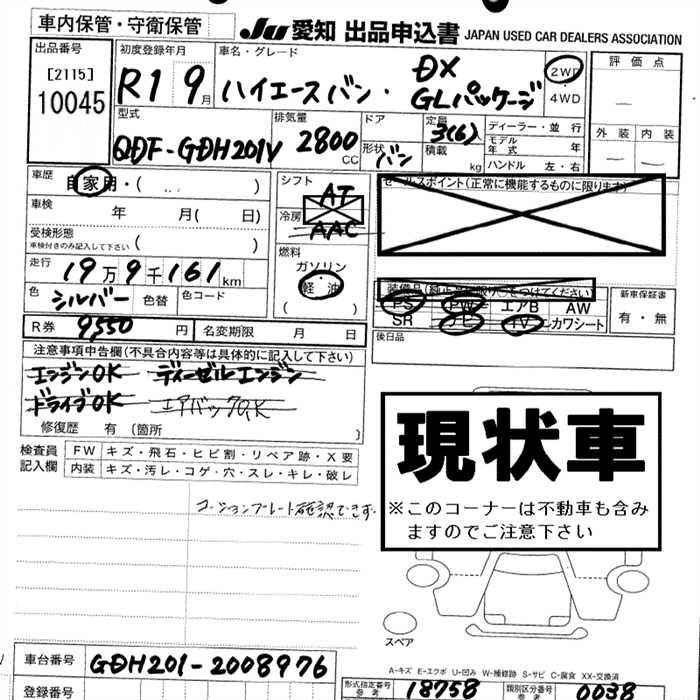 車内保管・守衛保管
Ju 愛知 出品申込書 JAPAN USED CAR DEALERS ASSOCIATION
出品番号
[2115]
10045
初度登録年月
R1 9月
車名・グレード
ハイエースバン・ DX
GLパッケージ
2WD
・
4WD
評価点
外装 内装
型式
QDF-GDH201V
排気量
2800
CC
ドア
形状
バン
定員
3(6)
積載
kg
ディーラー・並行
モデル年式 年
ハンドル 左・右
車歴
自家用・( )
車検
年 月( 日)
受検形態
車検付きのみ記入して下さい ( )
走行
19万9千161km
色
シルバー
色替
色コード
シフト
AT
冷房
AAC
燃料
ガソリン
軽油
( )
セールスポイント(正常に機能するものに限ります)
装備品(純正品に限り○をつけてください)
PS PW エアB AW
SR ナビ TV カワシート
新車保証書
有・無
後日品
R券 9,550円
名変期限 月 日
注意事項申告欄(不具合内容等は具体的に記入して下さい)
エンジンOK ディーゼルエンジン
ドライブOK エアバックO,K
修復歴 有 (箇所 )
検査員
記入欄
FW キズ・飛石・ヒビ割・リペア跡・X要
内装 キズ・汚レ・コゲ・穴・スレ・キレ・破レ
コーションプレート確認できず.
現状車
※このコーナーは不動車も含み
ますのでご注意下さい
スペア
A-キズ E-エクボ U-凹み W-補修跡 S-サビ C-腐食 XX-交換済
車台番号 GDH201-2008976
登録番号
形式指定番号
参考
18758
類別区分番号
参考
0038